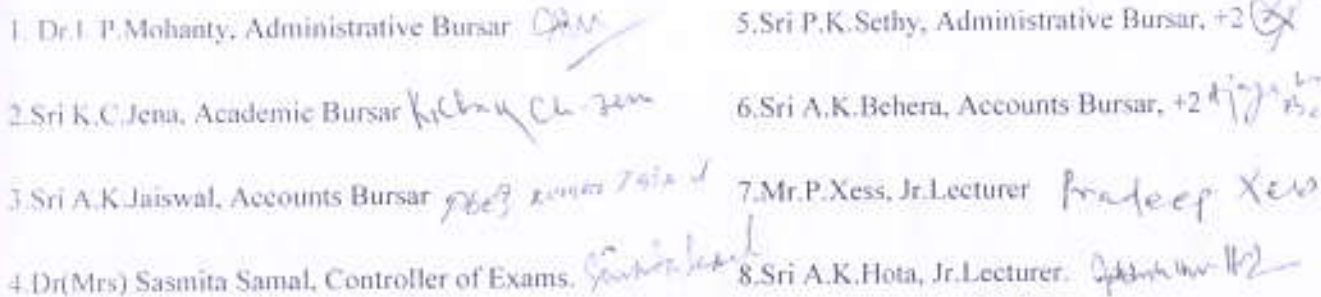 1. Dr.I. P.Mohanty, Administrative Bursar
2.Sri K.C.Jena, Academic Bursar Ch. Jena
3.Sri A.K.Jaiswal, Accounts Bursar
4.Dr(Mrs) Sasmita Samal, Controller of Exams.
5.Sri P.K.Sethy, Administrative Bursar, +2
6.Sri A.K.Behera, Accounts Bursar, +2
7.Mr.P.Xess, Jr.Lecturer Pradeep Xess
8.Sri A.K.Hota, Jr.Lecturer.